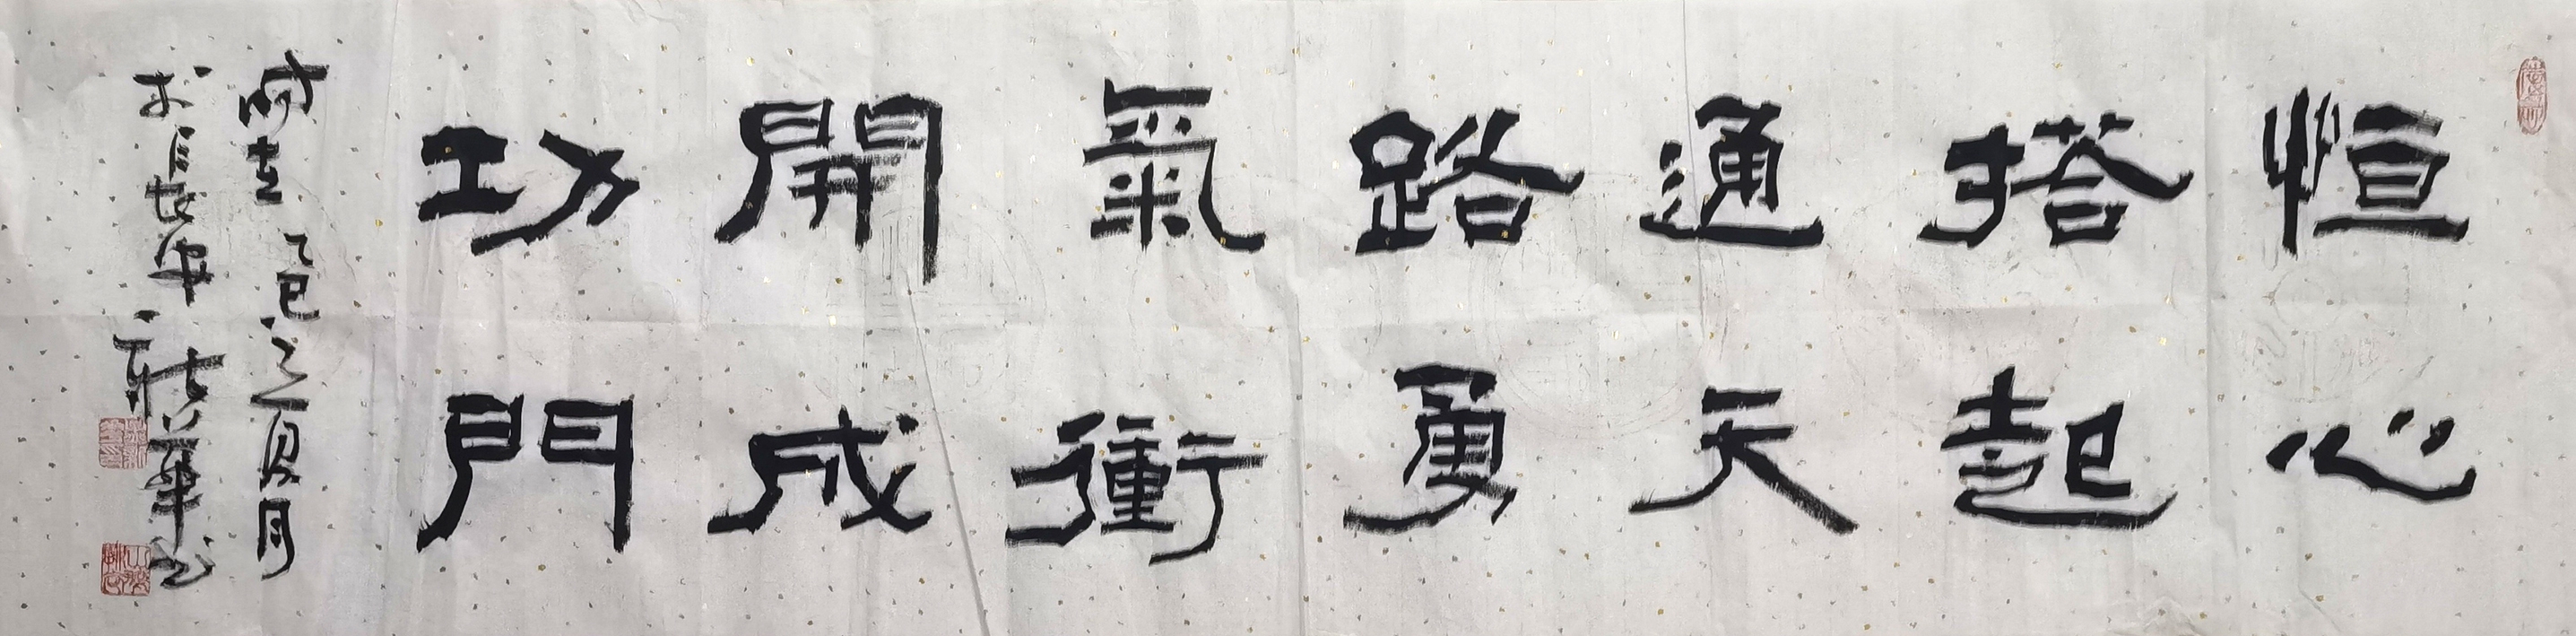 恒心
搭起
通天
路勇
氣衝
開成
功門
時在乙巳之夏月
於長安 華书